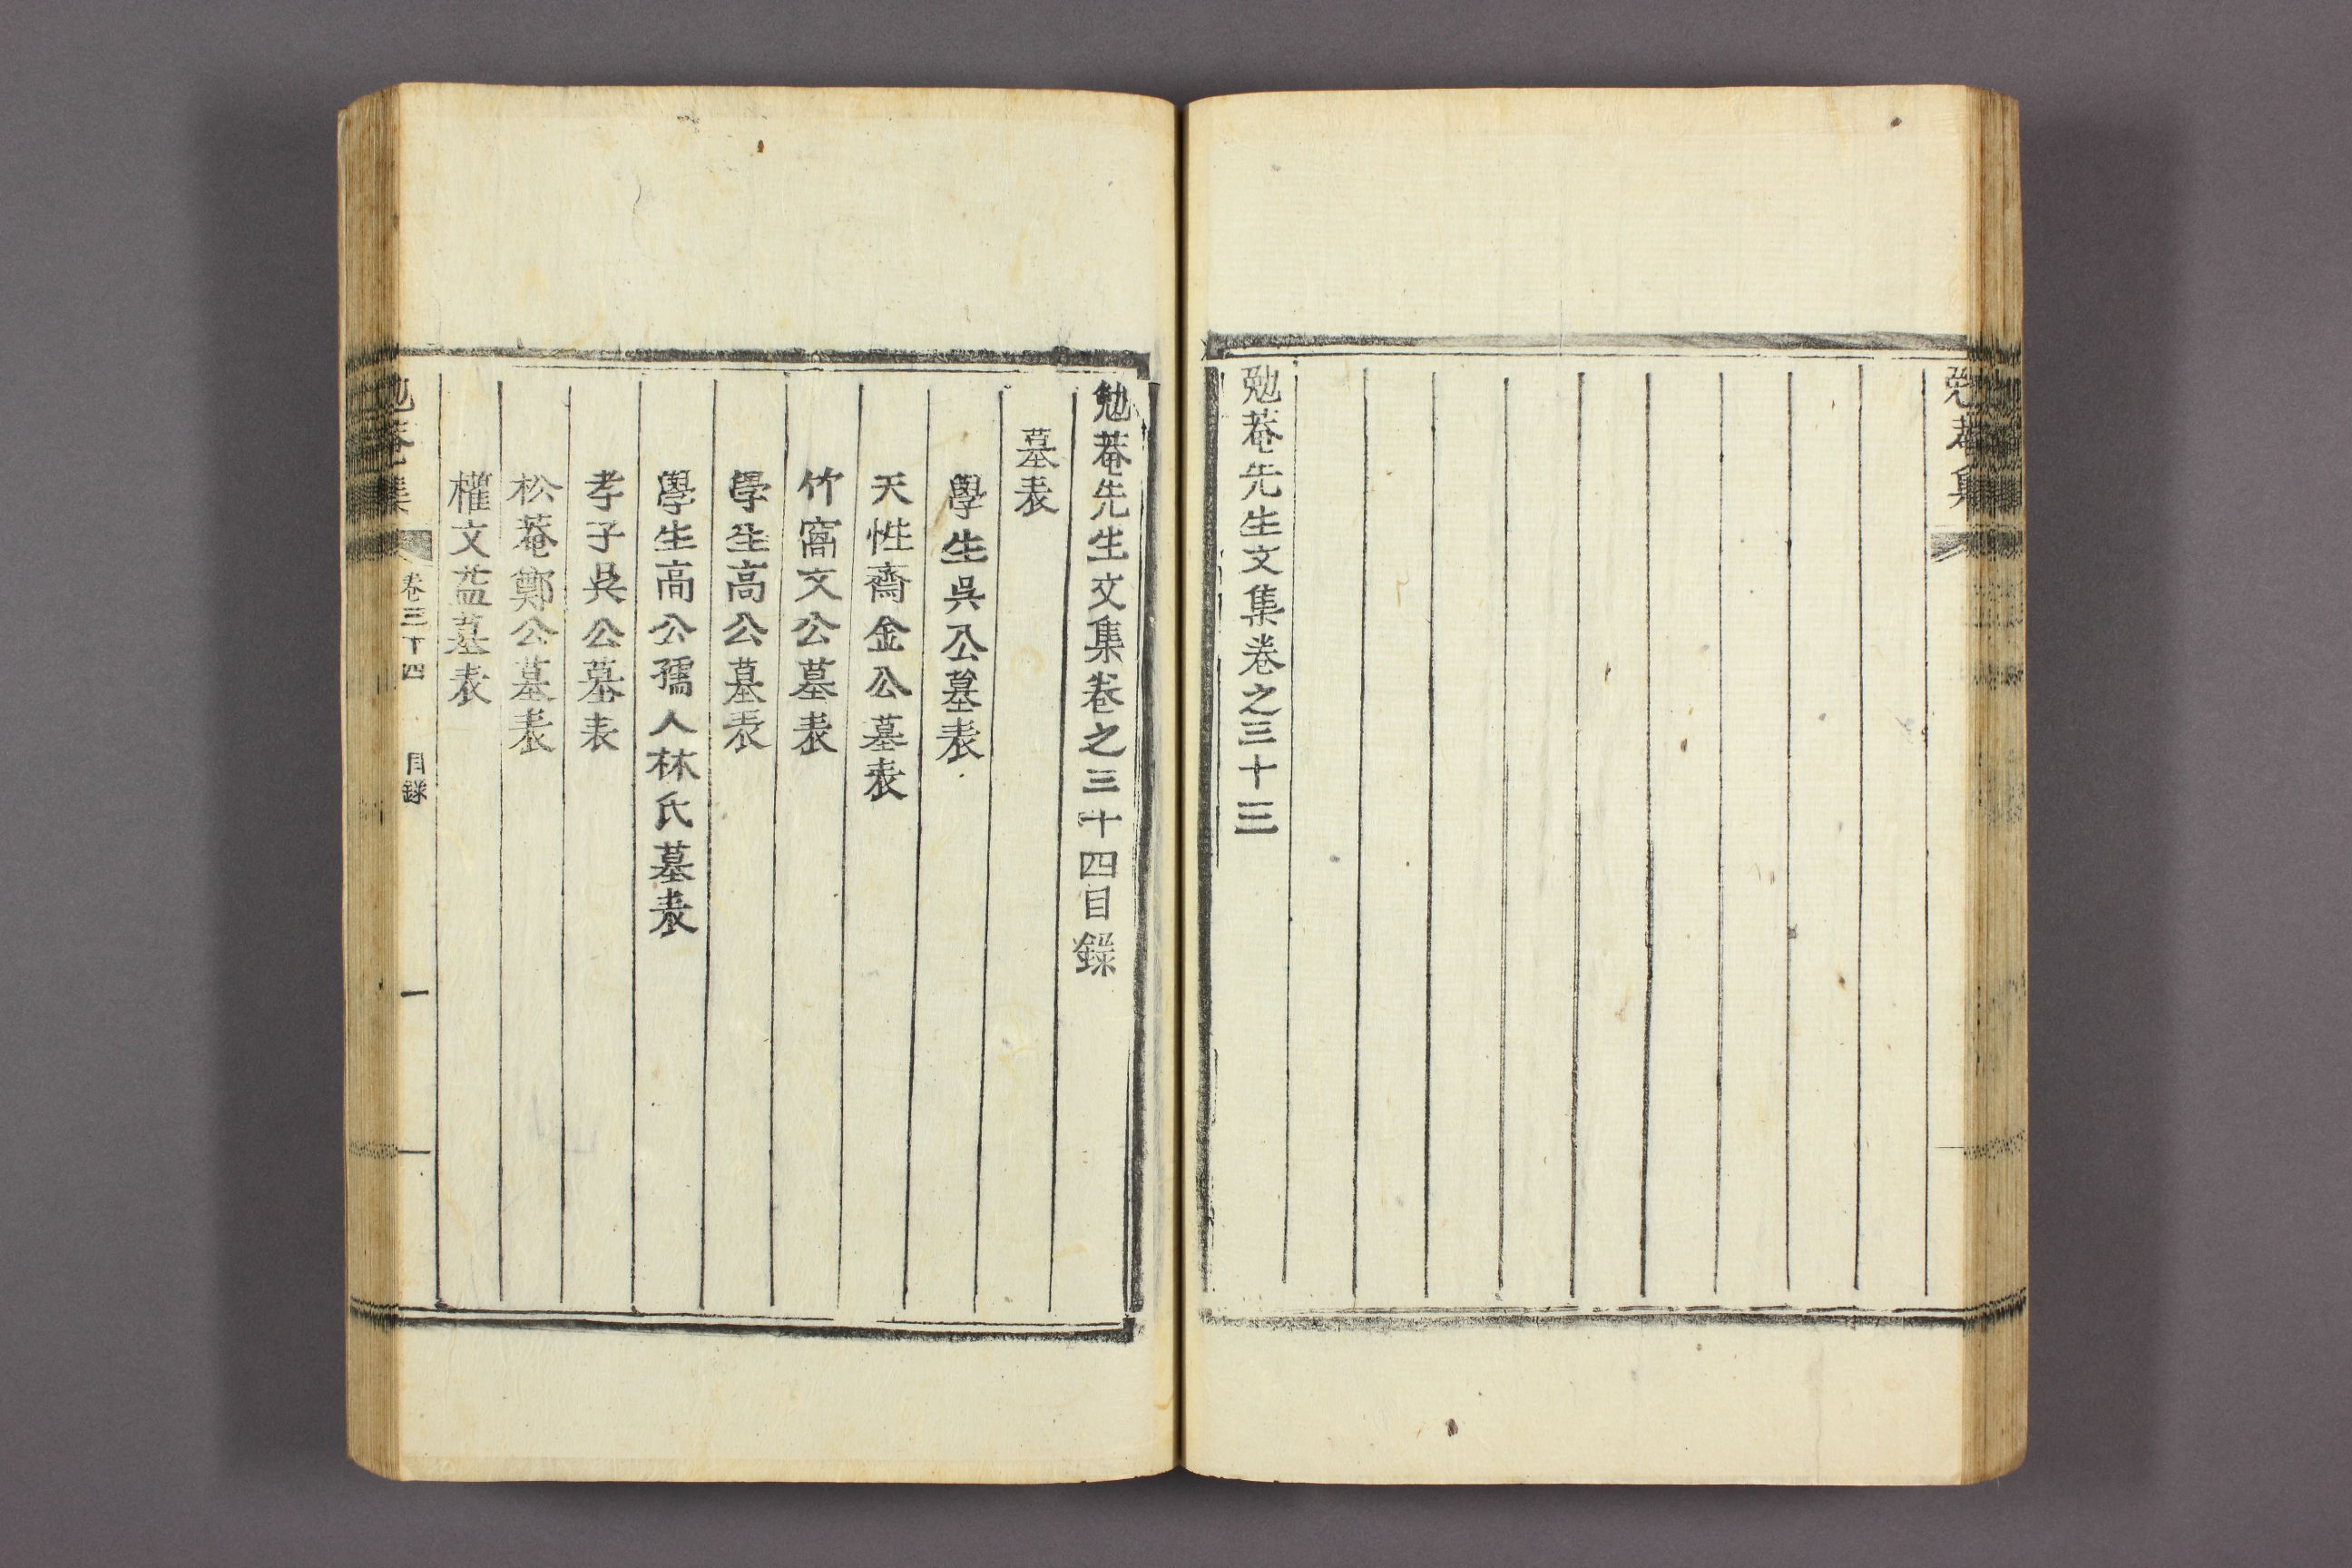 勉菴集
勉菴先生文集卷之三十三
勉菴先生文集卷之三十四目錄
墓表
學生吳公墓表
天性齋金公墓表
竹窩文公墓表
學生高公墓表
學生高公孺人林氏墓表
孝子吳公墓表
松菴鄭公墓表
權文益墓表
勉菴集 卷三十四 目錄 一